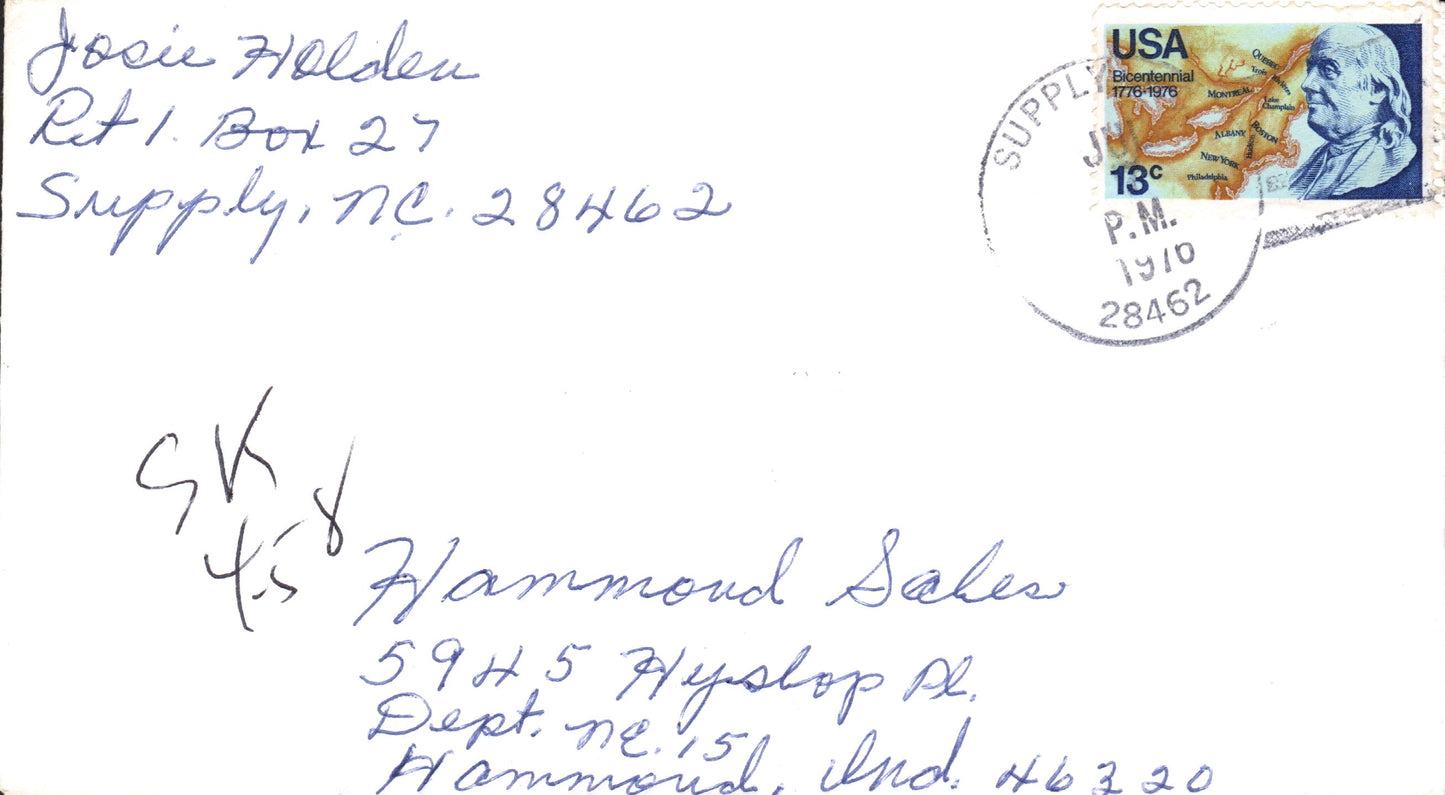 Josie Holden
Rt 1. Box 27
Supply, NC. 28462
USA
Bicentennial
1776-1976
QUEBEC
Trois Rivières
MONTREAL
Lake Champlain
ALBANY
BOSTON
Hudson
NEW YORK
Philadelphia
13c
SUPPLY
P.M.
1976
28462
GK
4.5 8
Hammond Sales
5945 Hyslop Pl.
Dept. NC. 15
Hammond, Ind. 46320